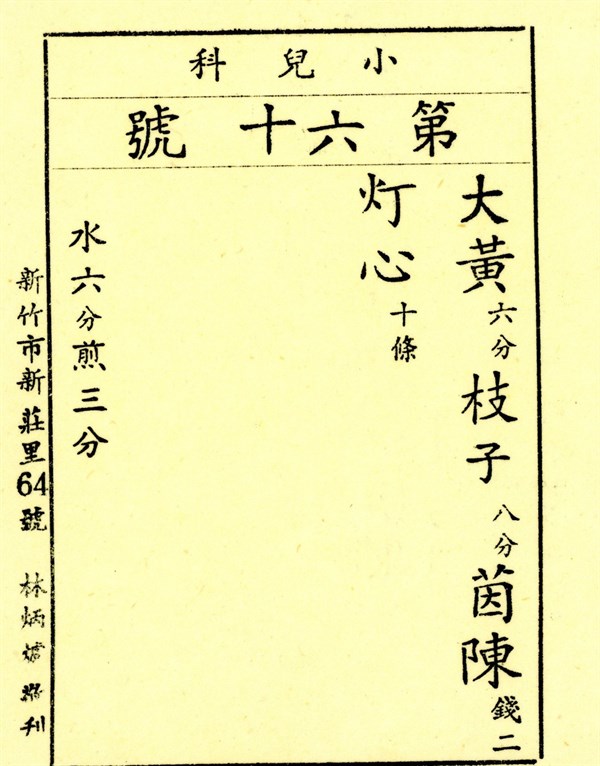 小兒科
第六十號
大黃六分枝子八分茵陳錢二
灯心十條
水六分煎三分
新竹市新莊里64號 林炳 刊